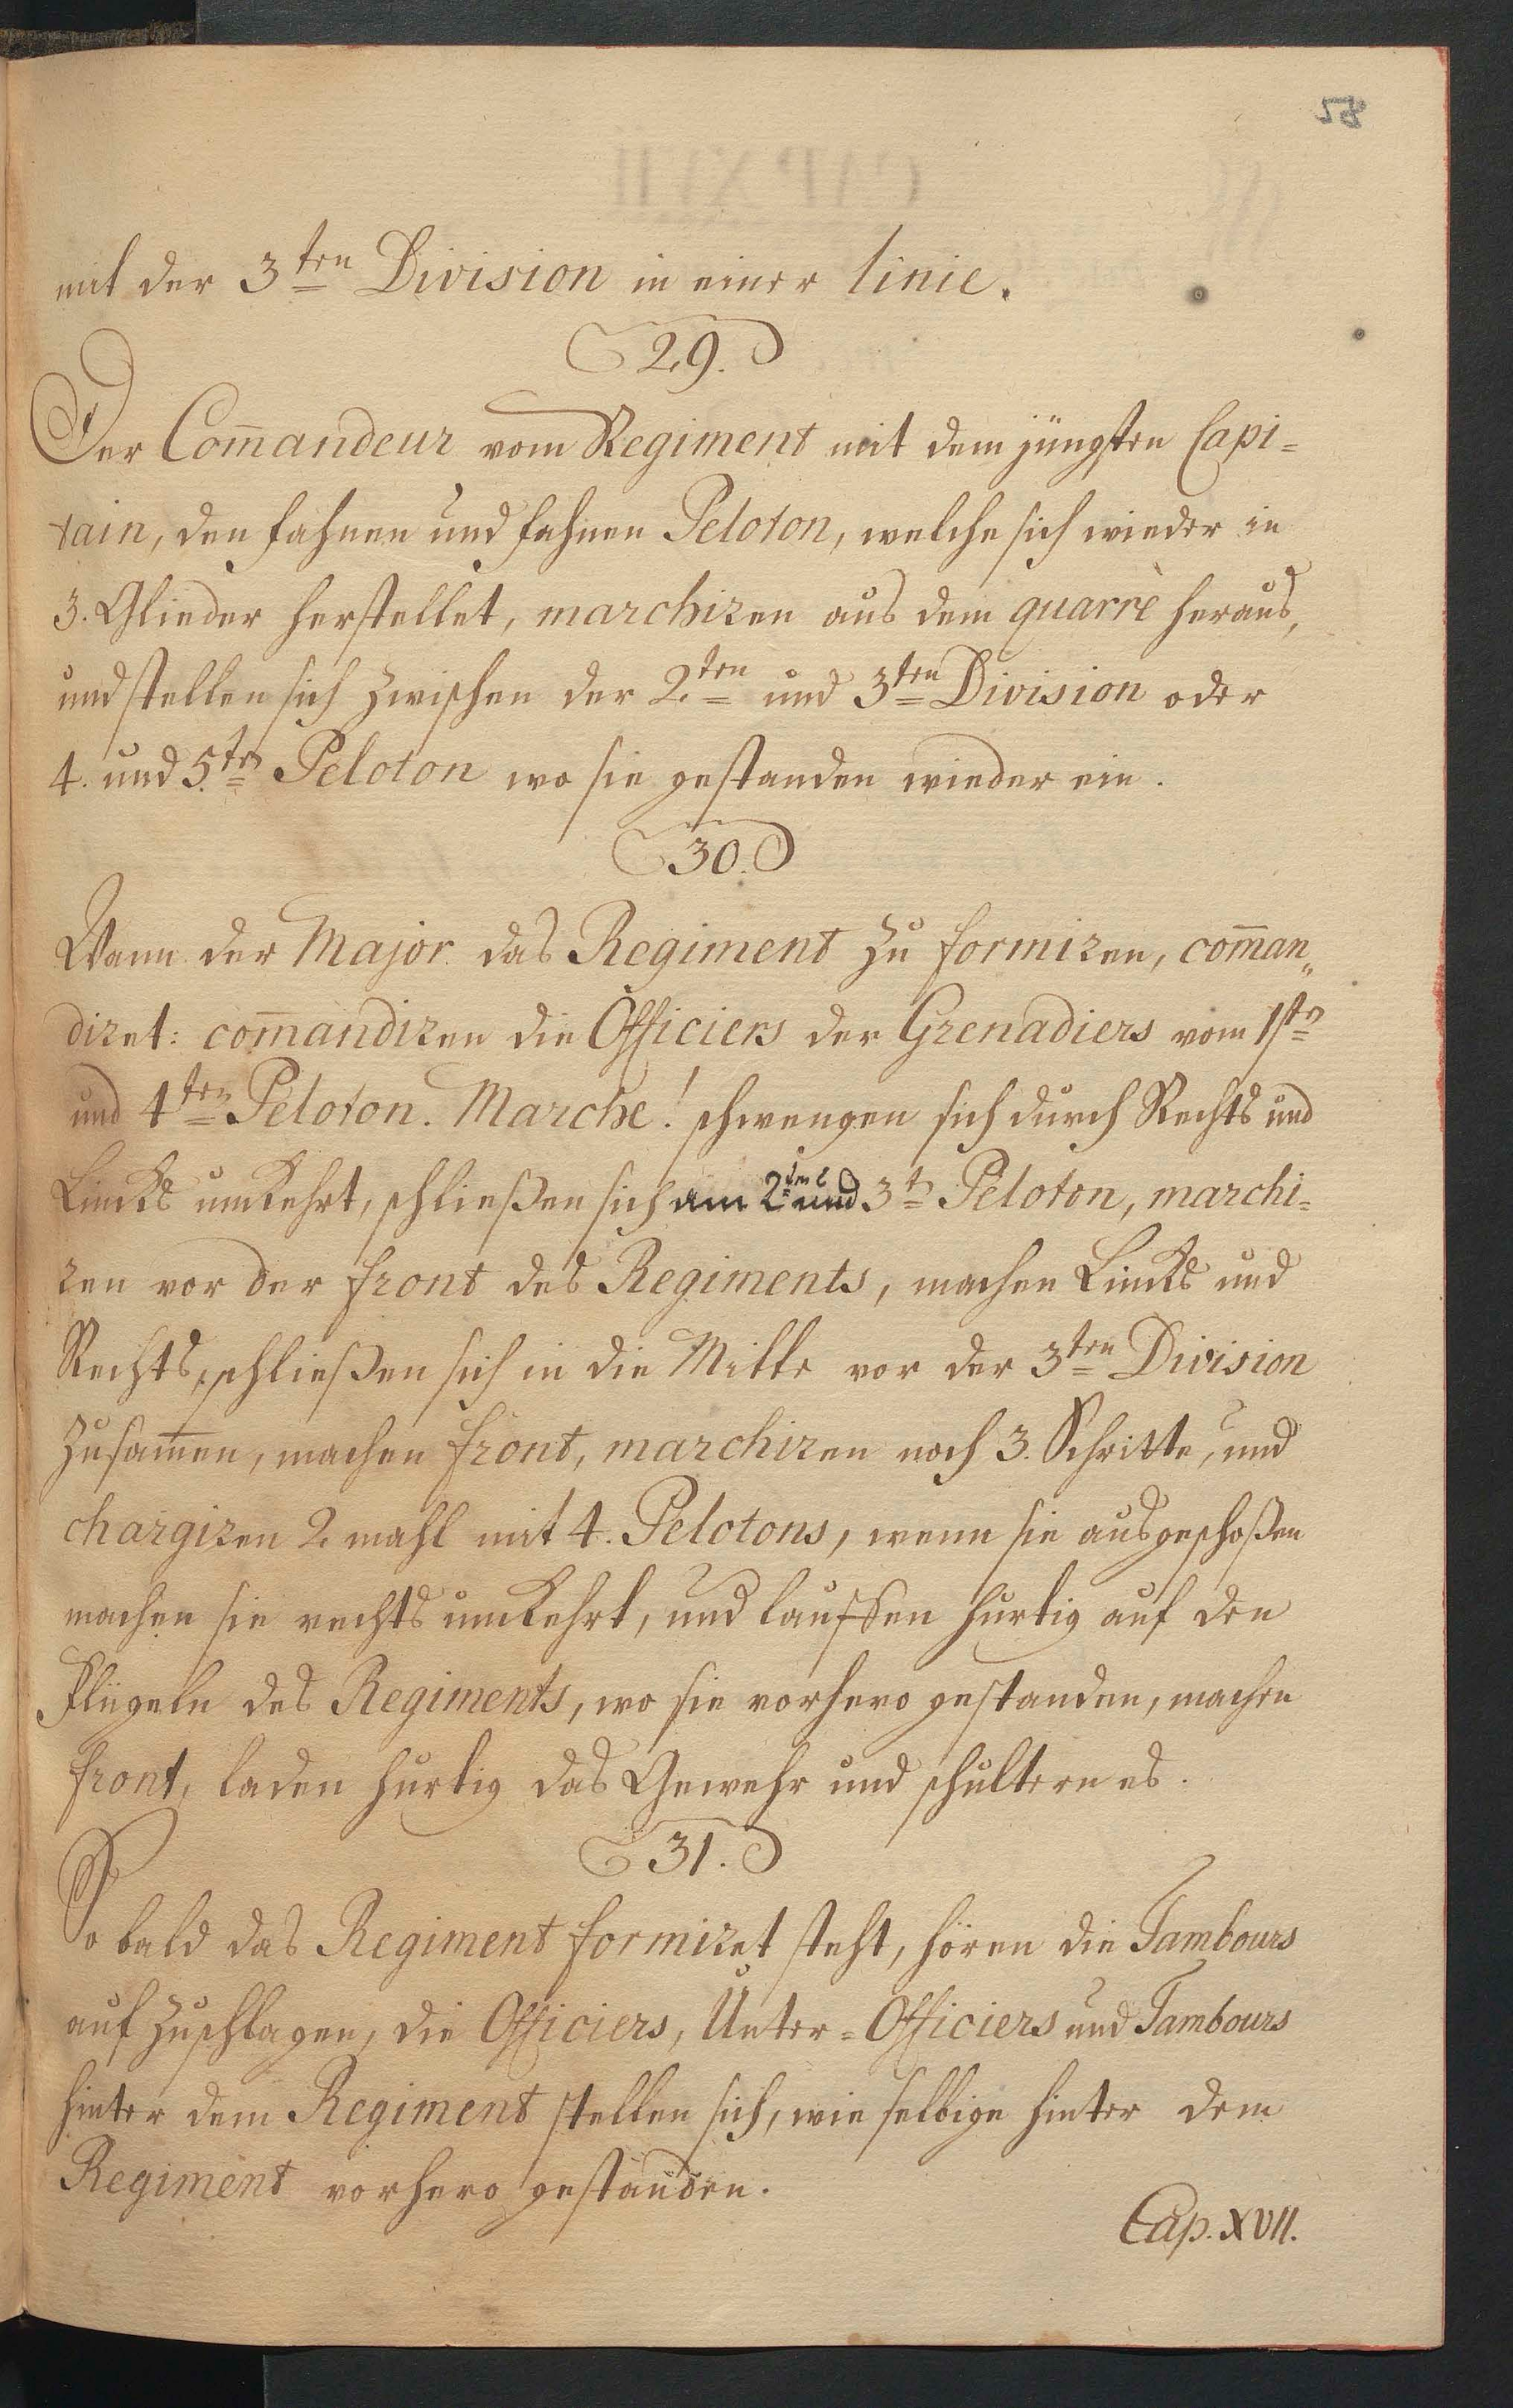 28
mit der 3ten Division in einer linie.
29.
Der Com̄andeur vom Regiment mit dem jüngsten Capi=
tain, den fahnen und fahnen Peloton, welche sich wieder in
3. Glieder herstellet, marchiren aus dem quarrè heraus,
und stellen sich zwischen der 2ten und 3ten Division oder
4. und 5.ten Peloton wo sie gestanden wieder ein.
30.
Wann der Major das Regiment zu formiren, com̄an„
diret: com̄andiren die Officiers der Grenadiers vom 1sten
und 4ten Peloton. Marche! schwengen sich durch Rechts und
Lincks umkehrt, schließen sich am 2ten und 3ten Peloton, marchi=
ren vor der front des Regiments, machen Lincks und
Rechts, schließen sich in die Mitte vor der 3ten Division
zusam̄en, machen front, marchiren noch 3. Schritte, und
chargiren 2. mahl mit 4. Pelotons, wenn sie ausgeschoßen
machen sie rechts umkehrt, und lauffen hurtig auf den
Flügeln des Regiments, wo sie vorhero gestanden, machen
front, laden hurtig das Gewehr und schultern es.
31.
So bald das Regiment formiret steht, hören die Tambours
auf zuschlagen, die Officiers, Unter=Officiers und Tambours
hinter dem Regiment stellen sich, wie selbige hinter dem
Regiment vorhero gestanden.
Cap. XVII.